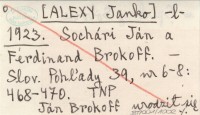 [ALEXY Janko] -l-
1923. Sochári Ján a
Ferdinand Brokoff. —
Slov. Pohľady 39, nr 6-8:
468-470. TNP
Ján Brokoff urodził się